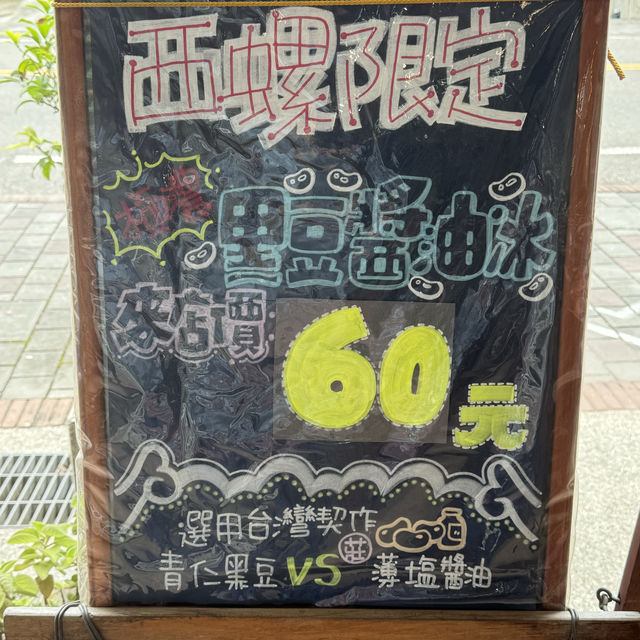 西螺限定
黑豆醬油冰
來店價
60元
選用台灣契作
青仁黑豆 VS 薄塩醬油